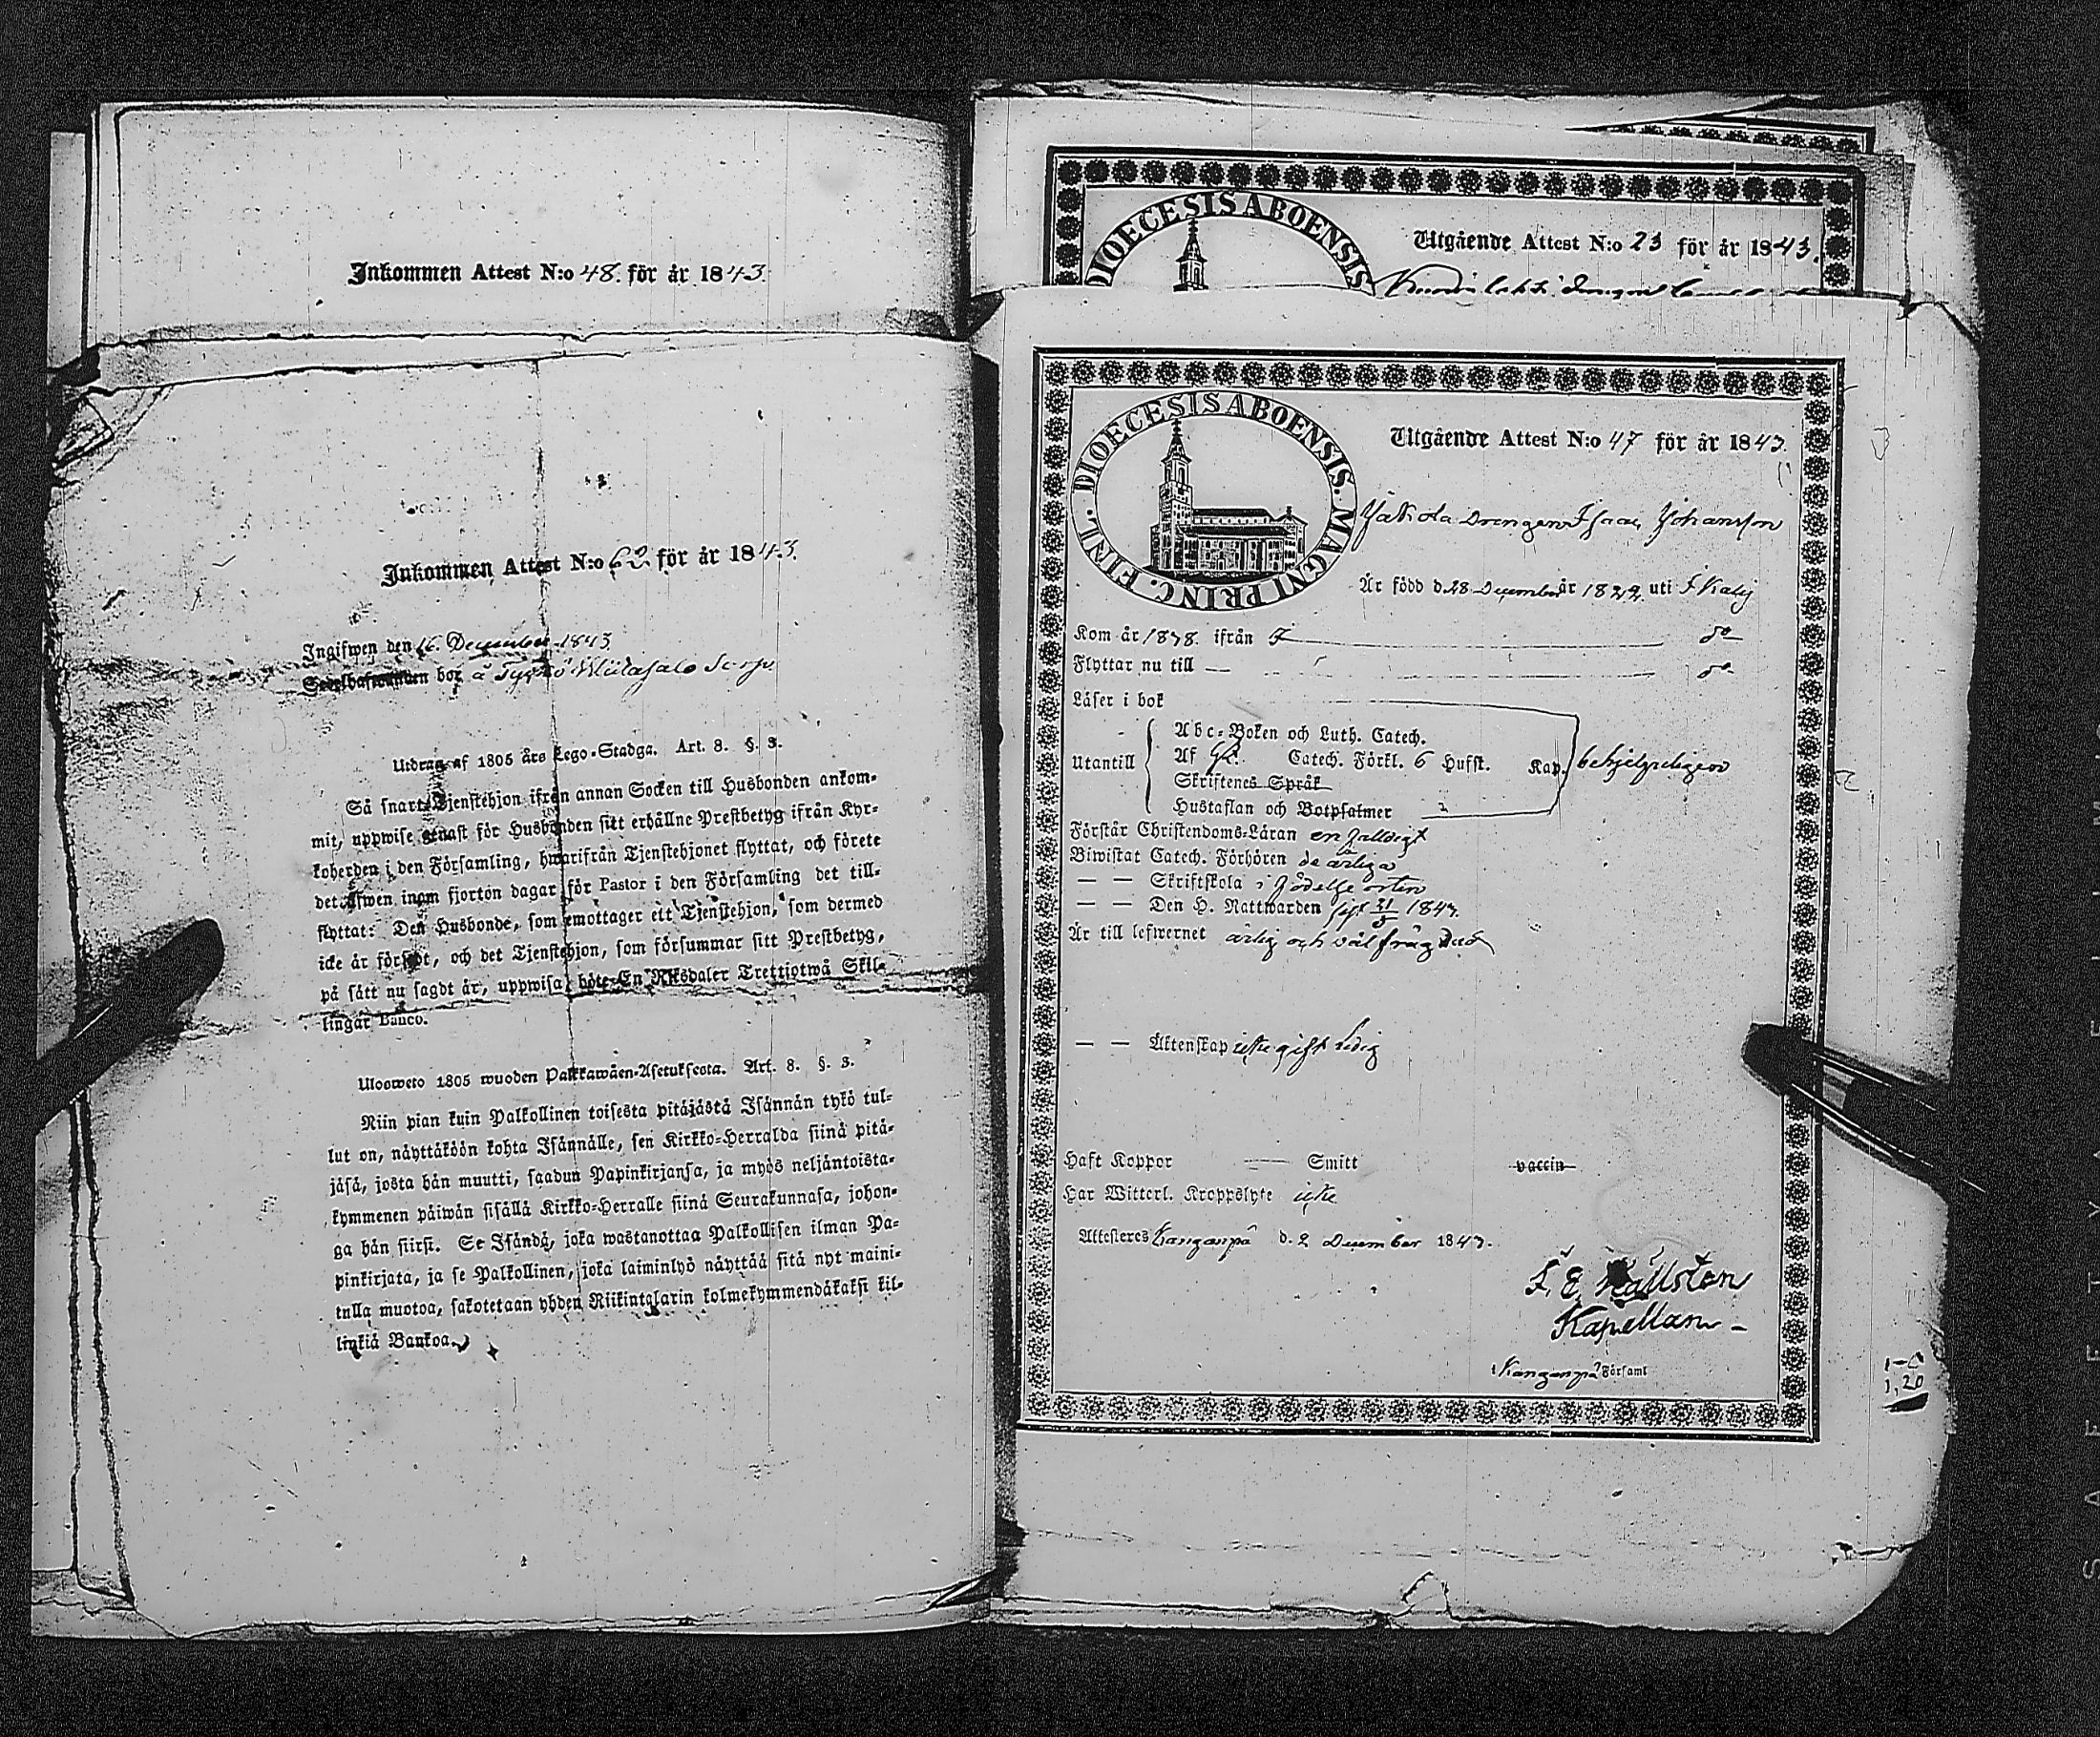 Inkommen Attest N:o 48. för år 1843.
Inkommen Attest N:o 62 för år 1843.
Ingifwen den 16. December 1843
Sedelhafwanden bor å
Utdrag af 1805 års Lego-Stadga. Art. 8. §. 3.
Så snart Tjenstehjon ifrån annan Socken till Husbonden ankom-
mit, uppwise genast för Husbonden sitt erhållne Prestbetyg ifrån Kyr-
koherden i den Församling, hwarifrån Tjenstehjonet flyttat, och förete
det äfwen inom fjorton dagar för Pastor i den Församling det till-
flyttat: Den Husbonde, som emottager ett Tjenstehjon, som dermed
icke är försedt, och det Tjenstehjon, som försummar sitt Prestbetyg,
på sätt nu sagdt är, uppwisa, böte En Riksdaler Trettiotwå Skil-
lingar Banco.
Ulosweto 1805 wuoden Palkkawäen-Asetuksesta. Art. 8. §. 3.
Niin pian kuin Palkollinen toisesta pitäjästä Isännän tykö tul-
lut on, näyttäköön kohta Isännälle, sen Kirkko-Herralda siinä pitä-
jäsä, josta hän muutti, saadun Papinkirjansa, ja myös neljäntoista-
kymmenen päiwän sisällä Kirkko-Herralle siinä Seurakunnasa, johon-
ga hän siirsi. Se Isändä, joka wastanottaa Palkollisen ilman Pa-
pinkirjata, ja se Palkollinen, joka laiminlyö näyttää sitä nyt maini-
tulla muotoa, sakotetaan yhden Riikintalarin kolmekymmendäkaksi kil-
linkiä Bankoa.
DIOECESIS ABOENSIS
Utgående Attest N:o 23 för år 1843.
DIOECESIS ABOENSIS. MAGNI PRINC. FINL.
Utgående Attest N:o 47 för år 1843.
Drengen Isaac Johansson
Är född d. 28 December år 1822 uti
Kom år 1838. ifrån
Flyttar nu till
Läser i bok
Utantill
Abc-Boken och Luth. Catech.
Af Catech. Förkl. 6 Hufst. Kap.
Skriftenes Språk
Hustaflan och Botpsalmer
behjelpeligen
Förstår Christendoms-Läran enfalldigt
Biwistat Catech. Förhören de årliga
— — Skriftskola i födelse orten
— — Den H. Nattwarden sist 31/5 1843.
Är till lefwernet ärlig och väl frägdad
— — Äktenskap icke gift Ledig
Haft Koppor — Smitt vaccin
Har Witterl. Kroppslyte icke
Attesteres Kangasnpä d. 2 December 1843.
Kapellan
Församl
1,20